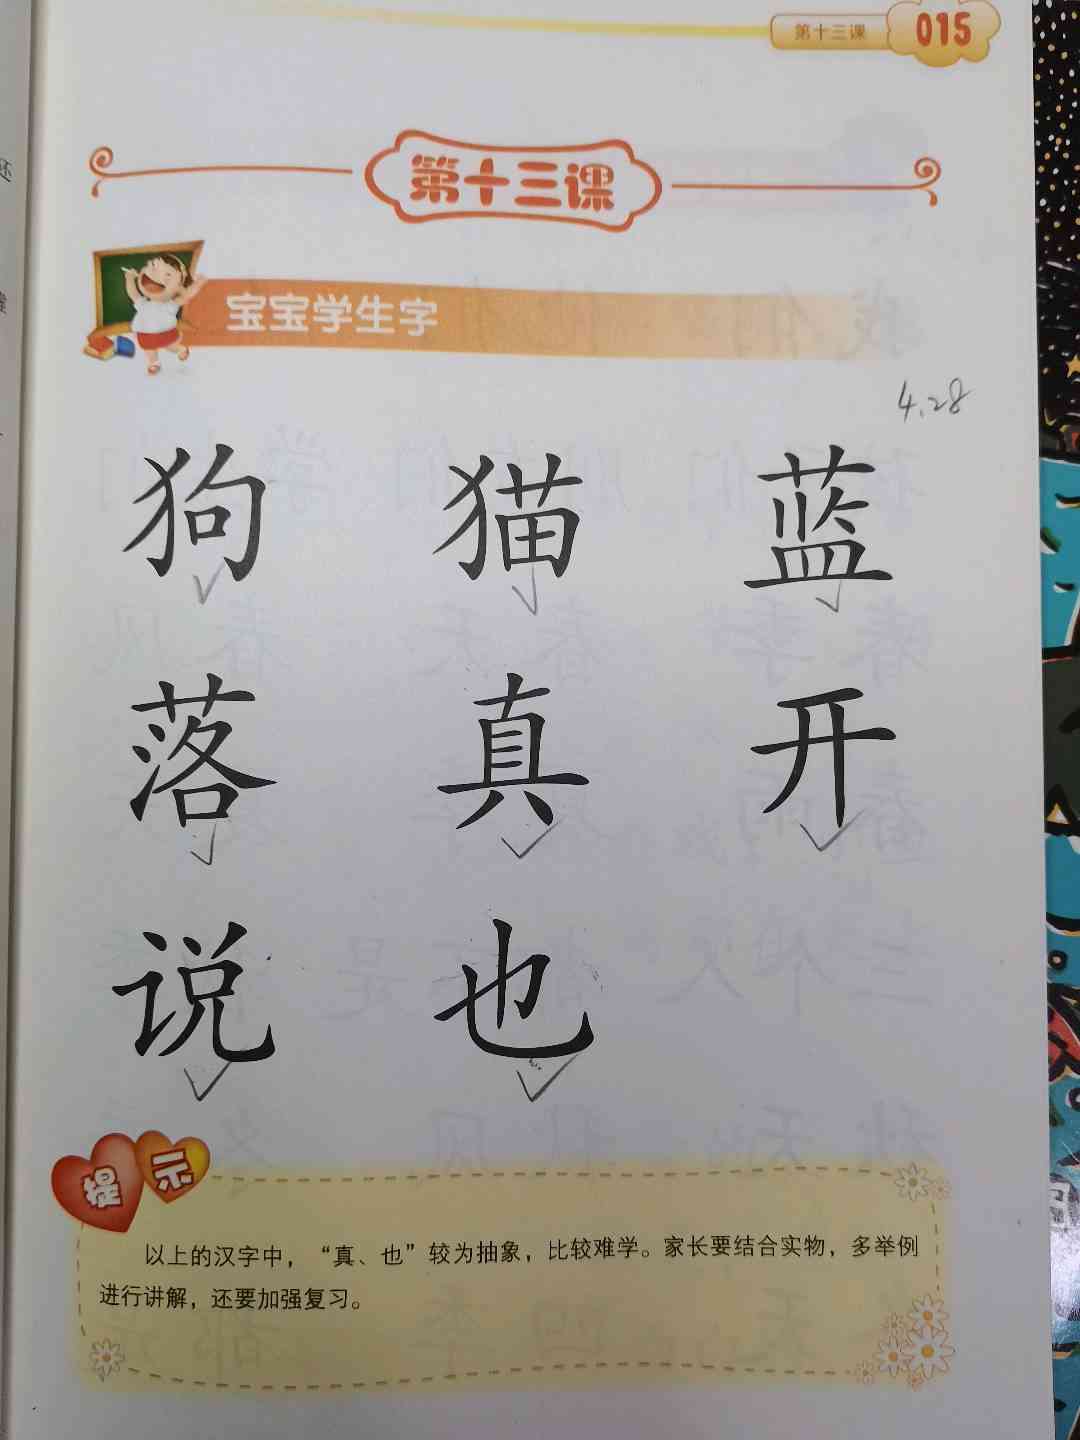 第十三课 015
第十三课
宝宝学生字
4.28
狗 猫 蓝
落 真 开
说 也
提示
以上的汉字中，“真、也”较为抽象，比较难学。家长要结合实物，多举例
进行讲解，还要加强复习。